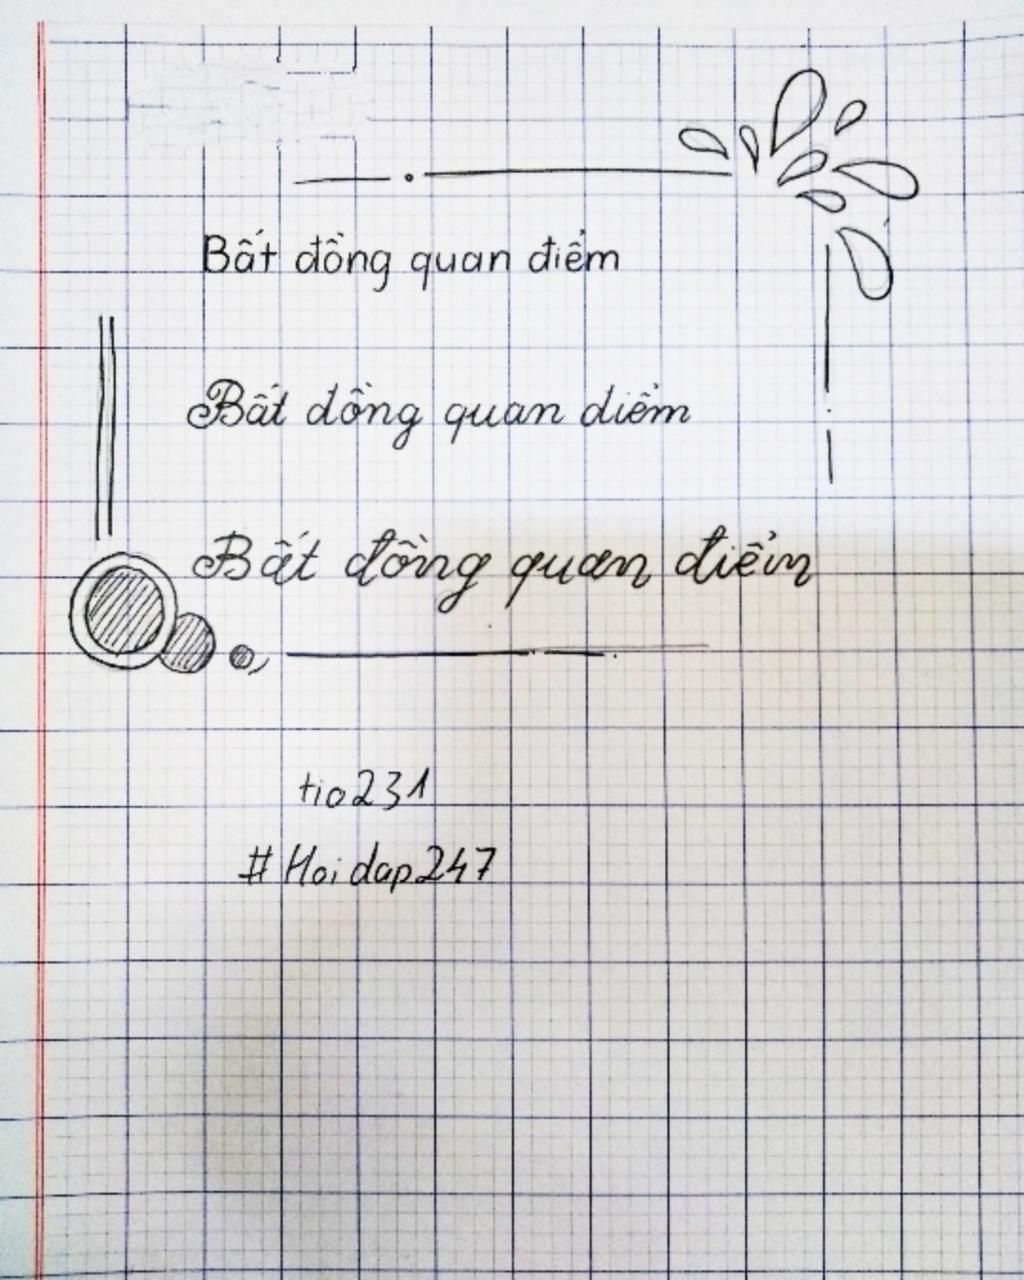 Bất đồng quan điểm
Bất đồng quan điểm
Bất đồng quan điểm
tio231
#Hoidap247